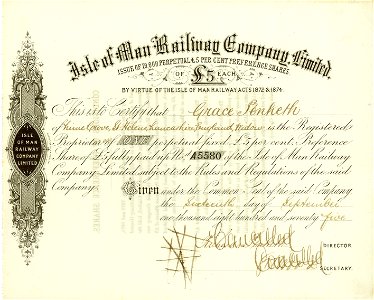 Isle of Man Railway Company, Limited.
ISSUE OF 12,000 PERPETUAL £5 PER CENT PREFERENCE SHARES
OF £5 EACH
BY VIRTUE OF THE ISLE OF MAN RAILWAY ACTS 1872 & 1874
This is to Certify that Grace Penketh
of Grove, St Helens Lancashire England Widow is the Registered
Proprietor of perpetual fixed £5 per cent. Preference
Share of £5 fully paid up No. A5580 of the Isle of Man Railway
Company Limited subject to the Rules and Regulations of the said
Company. Given under the Common Seal of the said Company
the Sixteenth day of September
one thousand eight hundred and seventy five
DIRECTOR
SECRETARY.
ISLE
OF MAN
RAILWAY
COMPANY
LIMITED